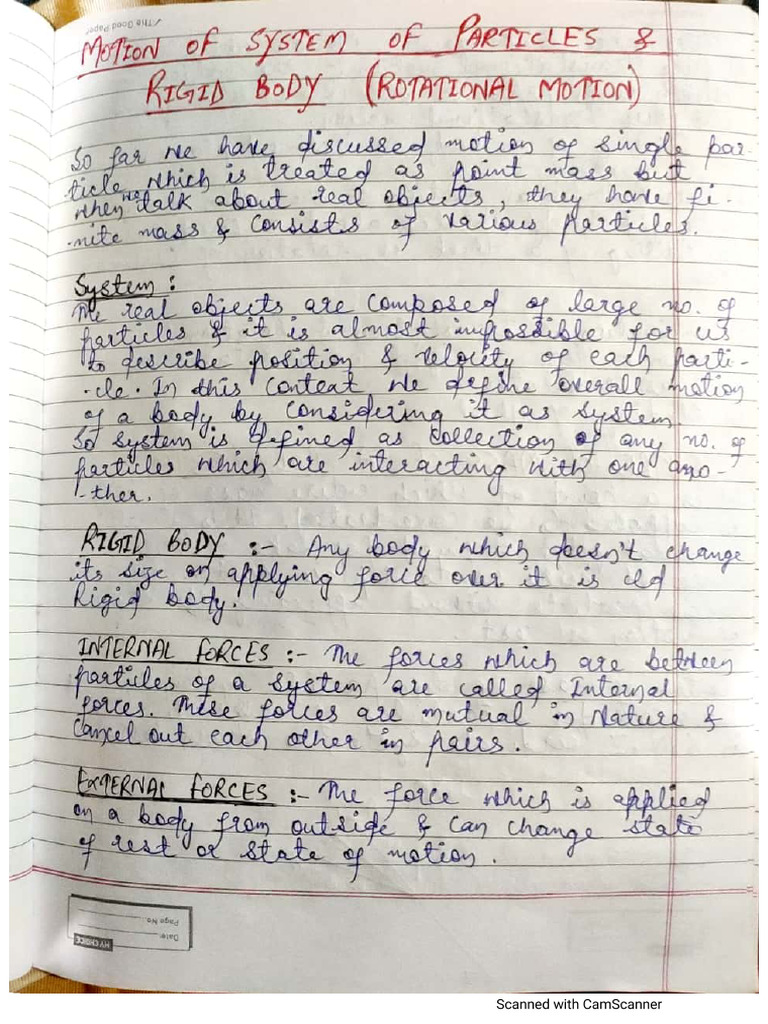 /The Good Paper
MOTION OF SYSTEM OF PARTICLES &
RIGID BODY (ROTATIONAL MOTION)
So far we have discussed motion of single par-
ticle which is treated as point mass but
when we talk about real objects, they have fi-
-nite mass & consists of various particles.
System :
The real objects are composed of large no. of
particles & it is almost impossible for us
to describe position & velocity of each parti-
-cle. In this context we define overall motion
of a body by considering it as system.
So system is defined as collection of any no. of
particles which are interacting with one ano-
-ther.
RIGID BODY :- Any body which doesn't change
its size on applying force over it is cld
Rigid body.
INTERNAL FORCES :- The forces which are between
particles of a system are called Internal
forces. These forces are mutual in Nature &
Cancel out each other in pairs.
EXTERNAL FORCES :- The force which is applied
on a body from outside & can change state
of rest or state of motion.
Page No.
Date
MY CHOICE
Scanned with CamScanner